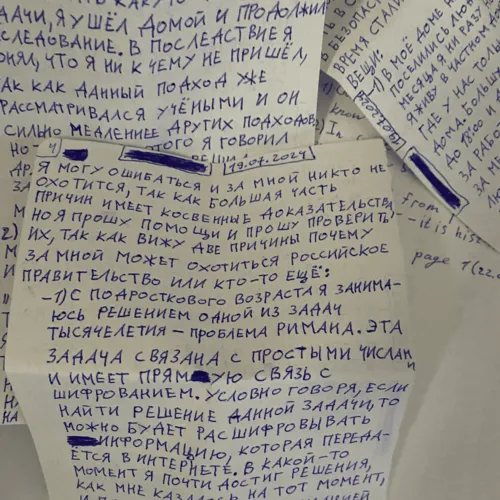 ДАЧИ, Я УШЁЛ ДОМОЙ И ПРОДОЛЖИЛ
СЛЕДОВАНИЕ. В ПОСЛЕДСТВИЕ Я
ПОНЯЛ, ЧТО Я НИ К ЧЕМУ НЕ ПРИШЁЛ,
ТАК КАК ДАННЫЙ ПОДХОД УЖЕ
РАССМАТРИВАЛСЯ УЧЁНЫМИ И ОН
СИЛЬНО МЕДЛЕННЕЕ ДРУГИХ ПОДХОДОВ
ЭТОГО Я ГОВОРИЛ
4
19.07.2024
Я МОГУ ОШИБАТЬСЯ И ЗА МНОЙ НИКТО НЕ
ОХОТИТСЯ, ТАК КАК БОЛЬШАЯ ЧАСТЬ
ПРИЧИН ИМЕЕТ КОСВЕННЫЕ ДОКАЗАТЕЛЬСТВА,
НО Я ПРОШУ ПОМОЩИ И ПРОШУ ПРОВЕРИТЬ
ИХ, ТАК КАК ВИЖУ ДВЕ ПРИЧИНЫ ПОЧЕМУ
ЗА МНОЙ МОЖЕТ ОХОТИТЬСЯ РОССИЙСКОЕ
ПРАВИТЕЛЬСТВО ИЛИ КТО-ТО ЕЩЁ:
-1) С ПОДРОСТКОВОГО ВОЗРАСТА Я ЗАНИМА-
ЮСЬ РЕШЕНИЕМ ОДНОЙ ИЗ ЗАДАЧ
ТЫСЯЧЕЛЕТИЯ – ПРОБЛЕМА РИМАНА. ЭТА
ЗАДАЧА СВЯЗАНА С ПРОСТЫМИ ЧИСЛАМИ
И ИМЕЕТ ПРЯМУЮ СВЯЗЬ С
ШИФРОВАНИЕМ. УСЛОВНО ГОВОРЯ, ЕСЛИ
НАЙТИ РЕШЕНИЕ ДАННОЙ ЗАДАЧИ, ТО
МОЖНО БУДЕТ РАСШИФРОВЫВАТЬ
ИНФОРМАЦИЮ, КОТОРАЯ ПЕРЕДА-
ЁТСЯ В ИНТЕРНЕТЕ. В КАКОЙ-ТО
МОМЕНТ Я ПОЧТИ ДОСТИГ РЕШЕНИЯ,
КАК МНЕ КАЗАЛОСЬ НА ТОТ МОМЕНТ,
ВРЕМЯ СТАЛИ
ВЕЩИ:
-1) В МОЁ ДОМЕ
ПОСЕЛИЛИСЬ ЛЮ
МЕСЯЦ Я НИ РАЗУ
Я ЖИВУ В ЧАСТНОМ
ГДЕ У НАС ТОЛЬ
ДОМА. БОЛЬШ
from
it is
page 1 (22.